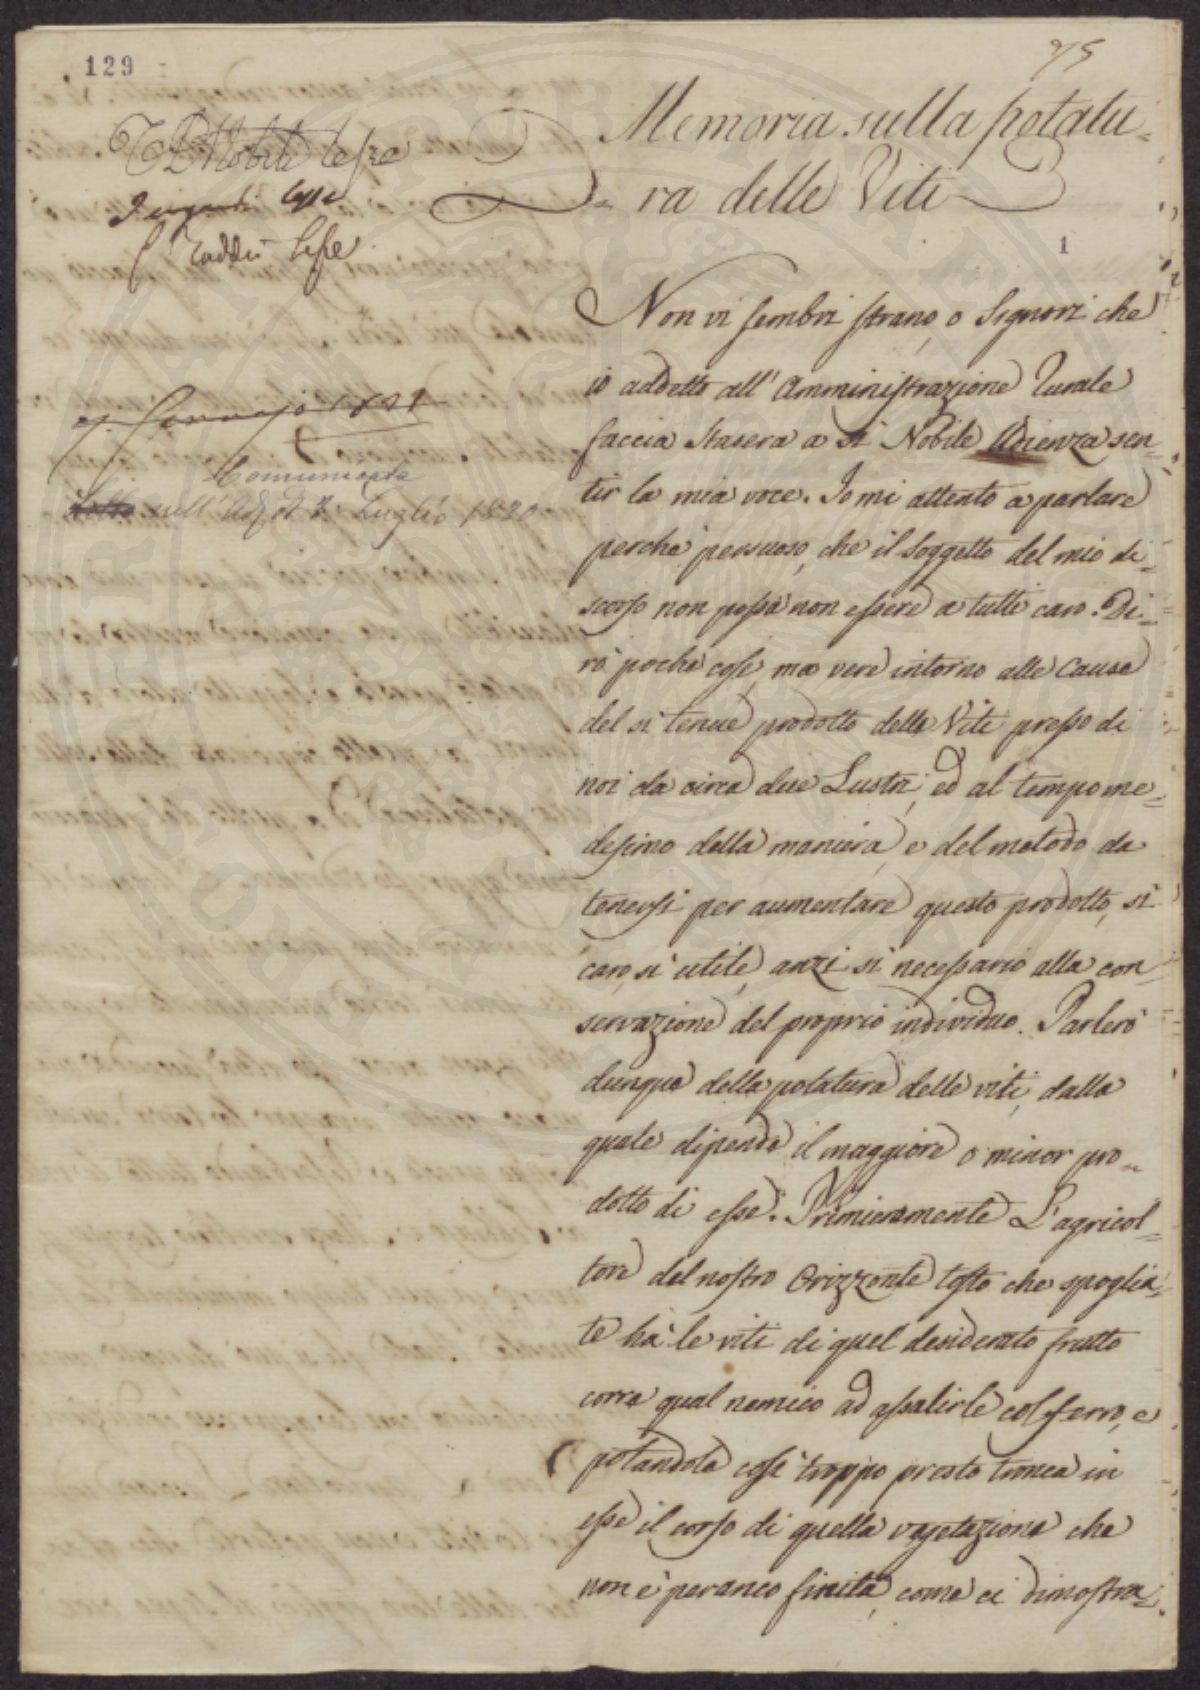 129
75
Memoria sulla potatu=
=ra delle Viti
Nobili lesse
lesse
Taddei lesse
1
Gennajo 1821
Comunicata
letta nell' Ad.
Luglio 1820
Non vi sembri strano, o Signori che
io addetto all' Amministrazione Rurale
faccia stasera a sì Nobile Adienza sen=
tir la mia voce. Io mi attento a parlare
perchè persuaso, che il soggetto del mio di=
scorso non possa non essere a tutti caro. Di=
rò poche cose, ma vere intorno alle Cause
del sì tenue prodotto delle Viti presso di
noi da circa due Lustri, ed al tempo me=
desimo della maniera, e del metodo da
tenersi per aumentare questo prodotto, sì
caro, sì utile, anzi sì necessario alla con=
servazione del proprio individuo. Parlerò
dunque della potatura delle viti, dalla
quale dipende il maggiore o minor pro=
dotto di esse. Primieramente L'agricol=
tore del nostro Orizzonte tosto che spoglia=
te hà le viti di quel desiderato frutto
corre qual nemico ad assalirle col ferro, e
potandole così troppo presto tronca in
esse il corso di quella vegetazione che
non è peranco finita, come ci dimostra=